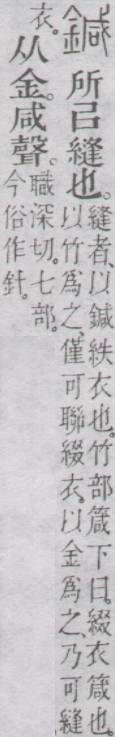 鍼所㠯縫也。縫者、以鍼紩衣也。竹部箴下曰。綴衣箴也。
以竹爲之、僅可聯綴衣。以金爲之、乃可縫
衣。从金。咸聲。職深切。七部。
今俗作針。